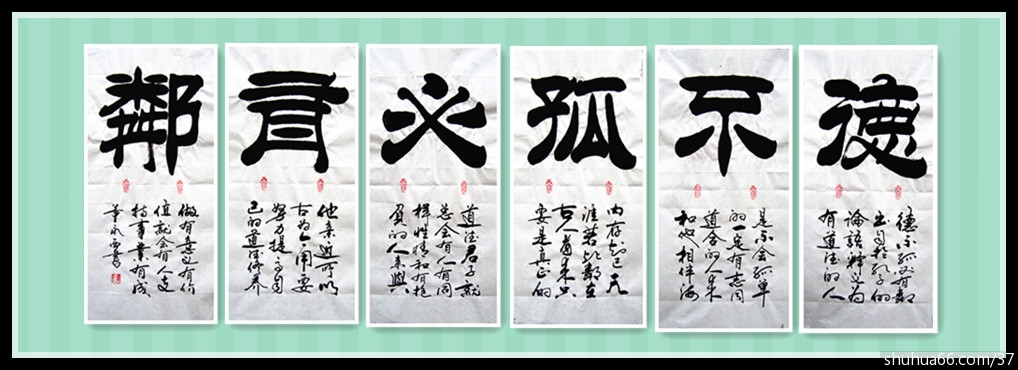 德
德不孤必有鄰
出自於孔子的
論語釋義為
有道德的人
不
是不會孤單
的一定有志同
道合的人来
和他相伴海
孤
内存知己天
涯若比鄰在
古人看来只
要是真正的
必
道德君子就
总会有人有同
样性情和有抱
負的人来與
有
他亲近所以
古为今用要
努力提高自
己的道德修养
鄰
做有意义有价
值就会有人支
持事業有成
shuhua66.com/37